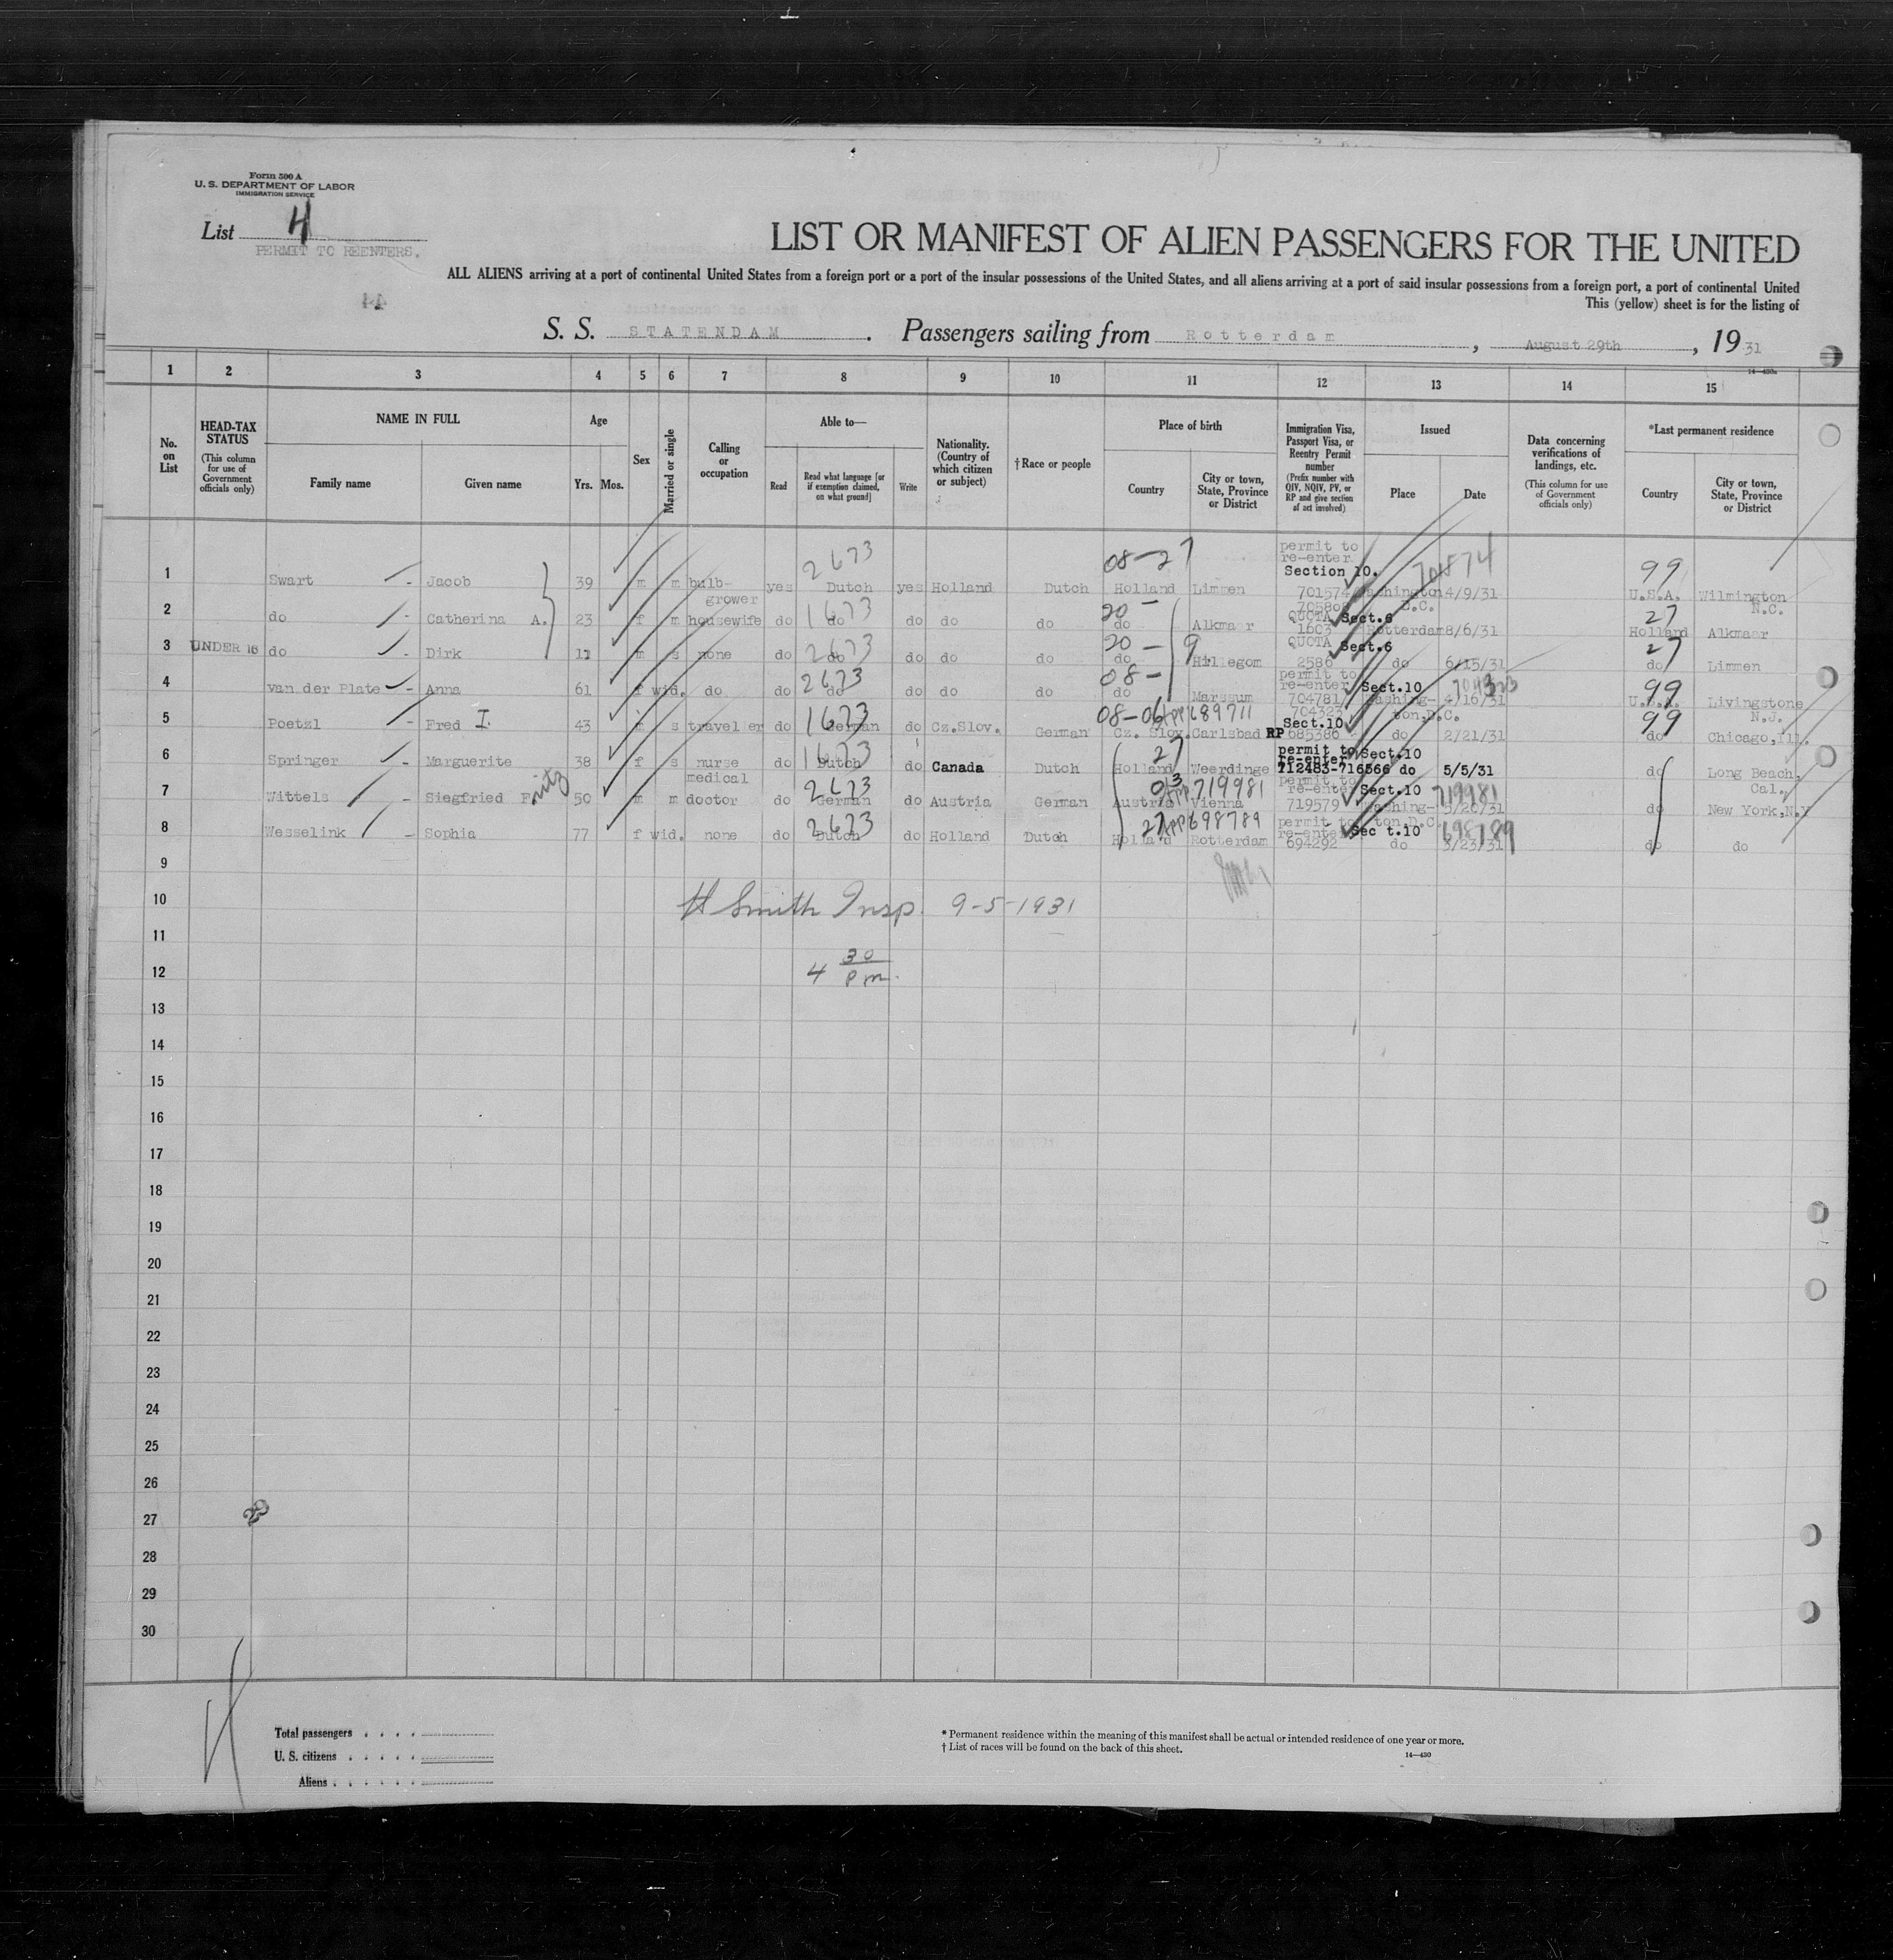 Form 500 A
U. S. DEPARTMENT OF LABOR
IMMIGRATION SERVICE
List 4
PERMIT TO REENTERS.
LIST OR MANIFEST OF ALIEN PASSENGERS FOR THE UNITED
ALL ALIENS arriving at a port of continental United States from a foreign port or a port of the insular possessions of the United States, and all aliens arriving at a port of said insular possessions from a foreign port, a port of continental United
This (yellow) sheet is for the listing of
S. S. STATENDAM. Passengers sailing from Rotterdam, August 29th, 1931
14—430a
1 2 3 4 5 6 7 8 9 10 11 12 13 14 15
No. on List
HEAD-TAX STATUS (This column for use of Government officials only)
NAME IN FULL
Family name Given name
Age
Yrs. Mos.
Sex
Married or single
Calling or occupation
Able to—
Read Read what language [or if exemption claimed, on what ground] Write
Nationality. (Country of which citizen or subject)
† Race or people
Place of birth
Country City or town, State, Province or District
Immigration Visa, Passport Visa, or Reentry Permit number (Prefix number with QIV, NQIV, PV, or RP and give section of act involved)
Issued
Place Date
Data concerning verifications of landings, etc. (This column for use of Government officials only)
*Last permanent residence
Country City or town, State, Province or District
2673 08-27 permit to re-enter Section 10. 701574 99
1 Swart - Jacob 39 m m bulb-grower yes Dutch yes Holland Dutch Holland Limmen 701574 Washington D.C. 4/9/31 U.S.A. Wilmington N.C.
1673 20- QUOTA Sect.6 27
2 do - Catherina A. 23 f m housewife do do do do do do Alkmaar 1603 Rotterdam 8/6/31 Holland Alkmaar
2673 20- QUOTA Sect.6 27
3 UNDER 16 do - Dirk m s none do do do do do do Hillegom 2586 do 6/15/31 do Limmen
2673 08- permit to re-enter Sect.10 704323 99
4 van der Plate - Anna 61 f wid. do do do do do do do Marssum 704781 Washington,D.C. 4/16/31 U.S.A. Livingstone N.J.
1673 08-06 App 689711 704323 Sect.10 99
5 Poetzl - Fred I. 43 m s traveler do German do Cz.Slov. German Cz. Slov. Carlsbad RP 685386 do 2/21/31 do Chicago,Ill.
1673 27 permit to re-enter Sect.10
6 Springer - Marguerite 38 f s nurse do Dutch do Canada Dutch Holland Weerdinge 712483-716566 do 5/5/31 do Long Beach, Cal.
2673 013 App 719981 permit to re-enter Sect.10 719981
7 Wittels - Siegfried Fritz 50 m m medical doctor do German do Austria German Austria Vienna 719579 Washington,D.C. 5/20/31 do New York,N.Y
2673 27 App 698789 permit to re-enter Sect.10 698789
8 Wesselink - Sophia 77 f wid. none do Dutch do Holland Dutch Holland Rotterdam 694292 do 3/23/31 do do
9
10 H Smith Insp. 9-5-1931
11
12 4 30 pm.
13
14
15
16
17
18
19
20
21
22
23
24
25
26
27
28
29
30
Total passengers
U. S. citizens
Aliens
* Permanent residence within the meaning of this manifest shall be actual or intended residence of one year or more.
† List of races will be found on the back of this sheet.
14—430